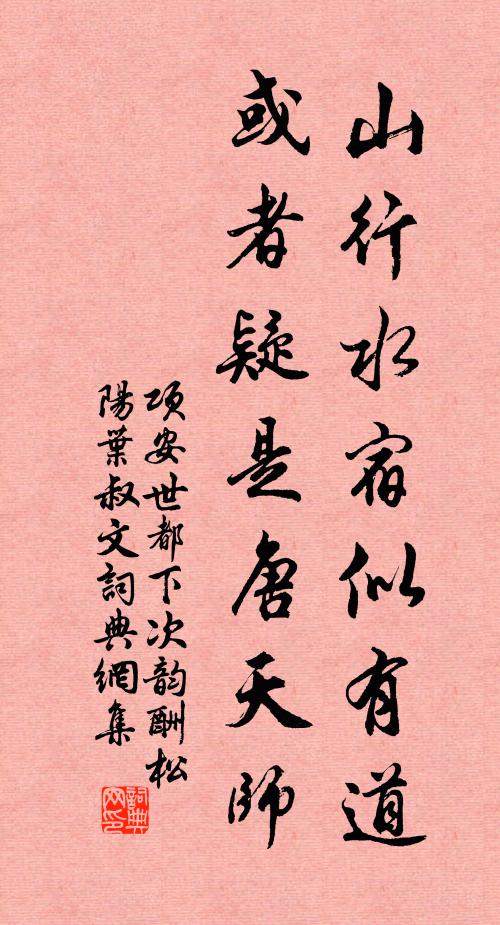 山行水宿似有道
或者疑是唐天師
項安世都下次韵酬松
陽葉叔文詞典網集
詞典
网印